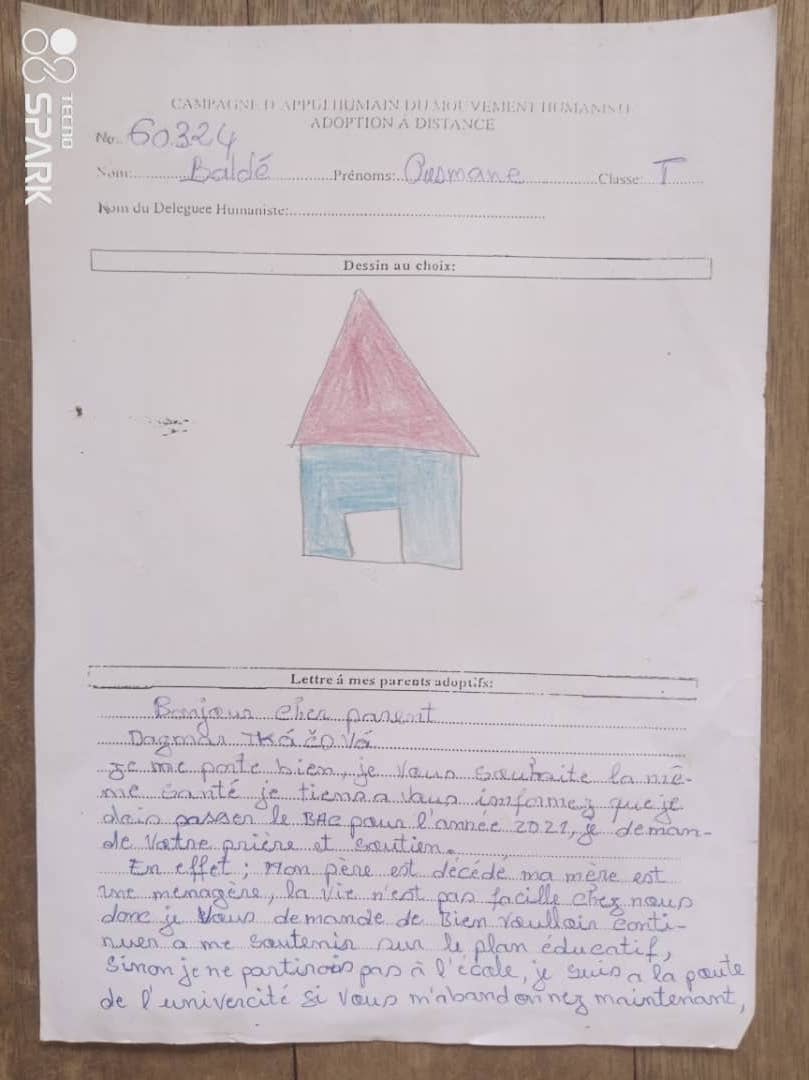 SPARK
TECNO
CAMPAGNE D'APPUI HUMAIN DU MOUVEMENT HUMANISTE
ADOPTION Á DISTANCE
No.. 60.324
Nom:............Baldé............Prénoms:..Ousmane............Classe:..T......
Nom du Deleguee Humaniste:......................................................
Dessin au choix:
Lettre á mes parents adoptifs:
Bonjour cher parent
Dagmar TKÁČOVÁ
Je me porte bien, je vous souhaite la mê-
me santé je tiens a vous informez que je
dois passer le BAC pour l'année 2021, je deman-
de vôtre prière et soutien.
En effet ; Mon père est décédé ma mère est
une ménagère, la vie n'est pas facille chez nous
donc je vous demande de Bien voulloir conti-
nuer a me soutenir sur le plan éducatif,
Sinon je ne partirois pas à l'école, je suis a la poute
de l'univercité si vous m'abandonnez maintenant,